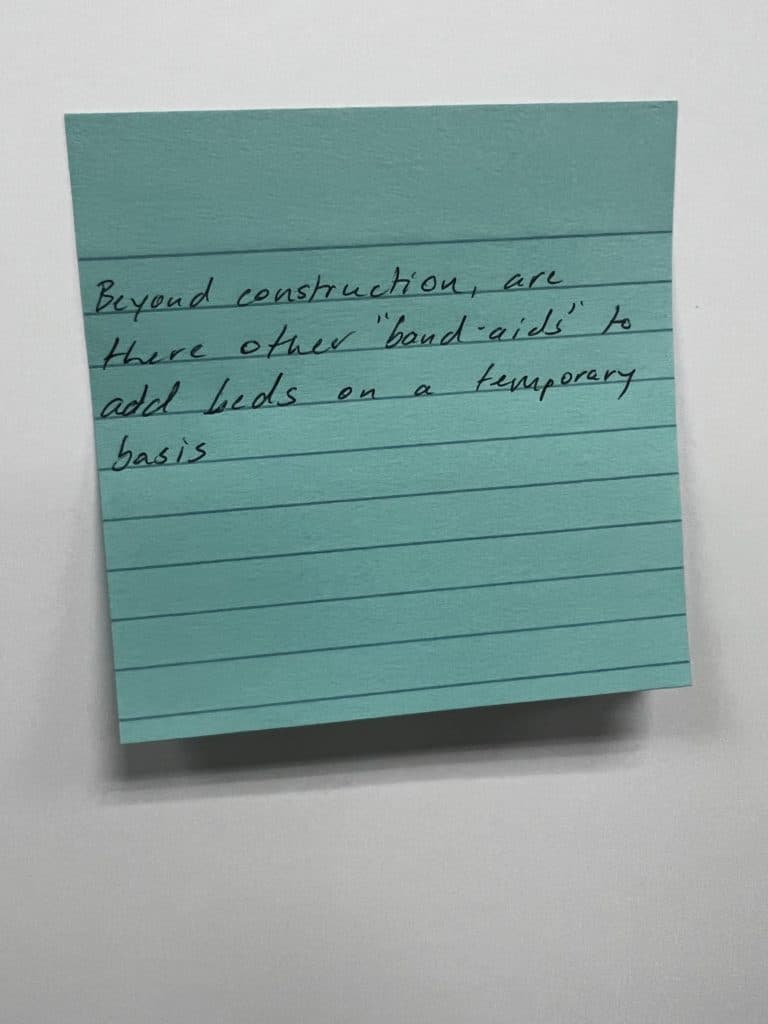 Beyond construction, are
there other "band-aids" to
add beds on a temporary
basis